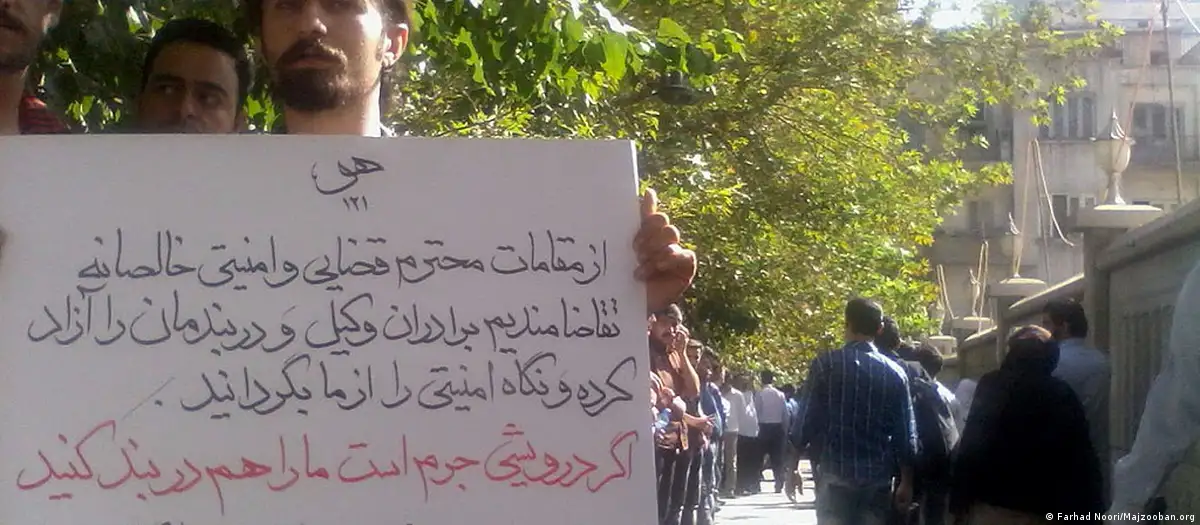 هو
۱۲۱
از مقامات محترم قضایی و امنیتی خالصانه
تقاضامندیم برادران وکیل و دربندمان را آزاد
کرده و نگاه امنیتی را از ما بگردانید.
اگر درویشی جرم است ما را هم در بند کنید
© Farhad Noori/Majzooban.org